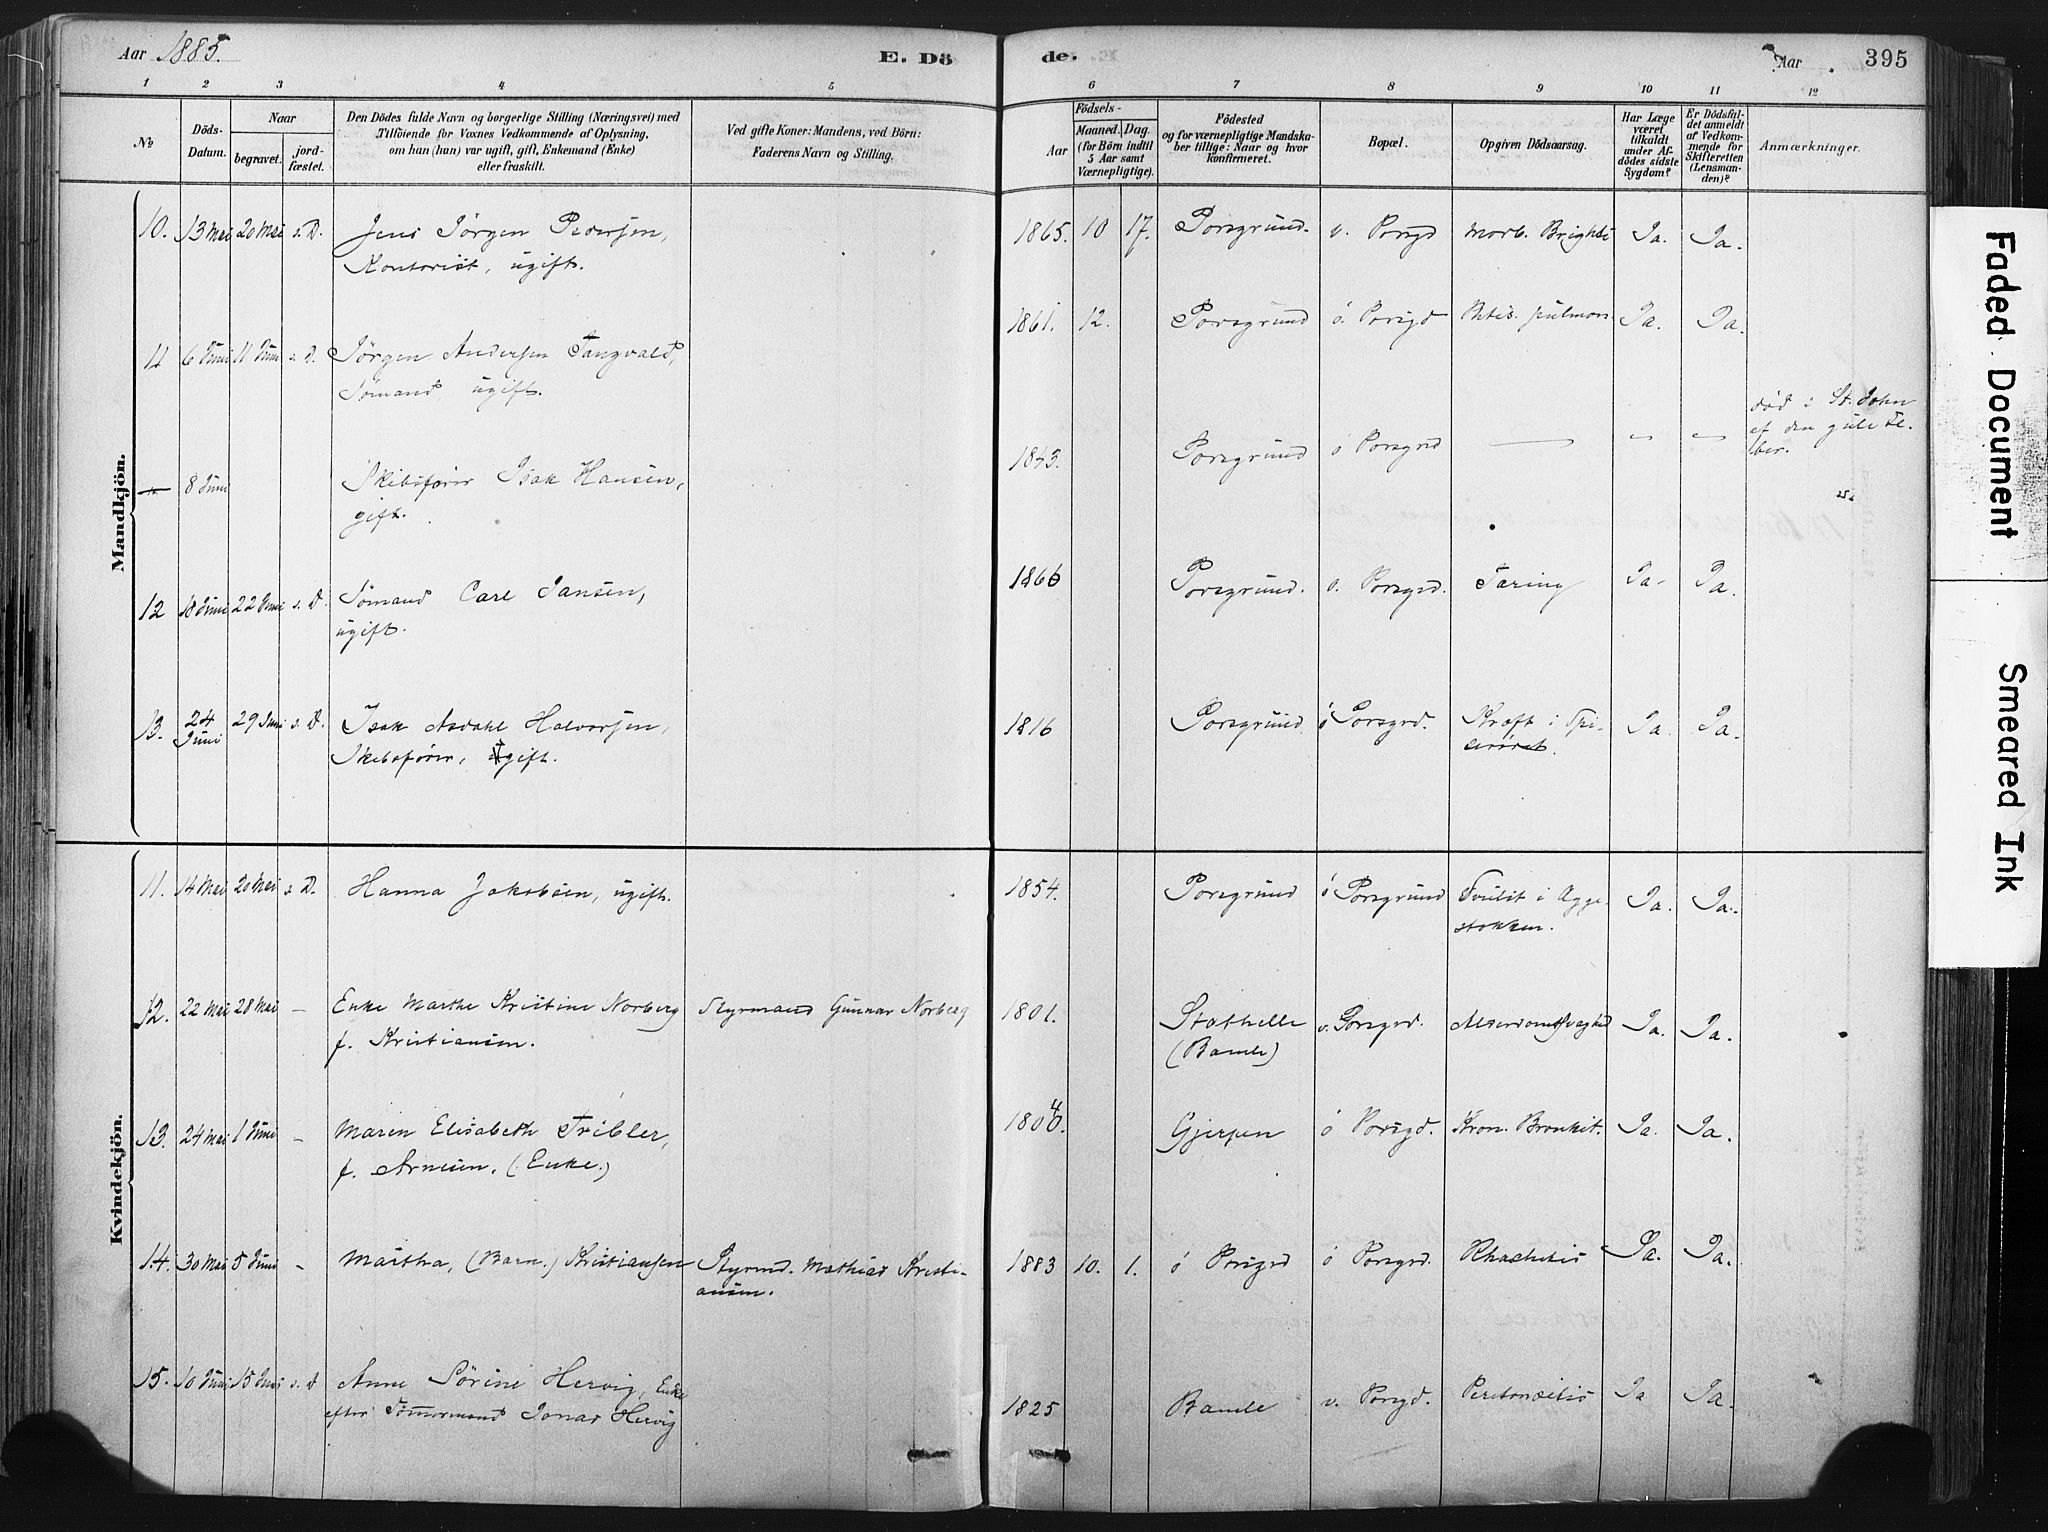 Aar 1885.
E. Dö
de.
Aar
395
1 2 3 4 5 6 7 8 9 10 11 12
No
Döds-
Datum.
Naar
begravet.
jord-
fæstet.
Den Dödes fulde Navn og borgerlige Stilling (Næringsvei) med
Tilföiende for Voxnes Vedkommende af Oplysning,
om han (hun) var ugift, gift, Enkemand (Enke)
eller fraskilt.
Ved gifte Koner: Mandens, ved Börn:
Faderens Navn og Stilling.
Födsels-
Aar
Maaned. Dag.
(for Börn indtil
5 Aar samt
Værnepligtige).
Födested
og for værnepligtige Mandska-
ber tillige: Naar og hvor
Konfirmeret.
Bopæl.
Opgiven Dödsaarsag.
Har Læge
været
tilkaldt
under Af-
dödes sidste
Sygdom?
Er Dödsfal-
det anmeldt
af Vedkom-
mende for
Skifteretten
(Lensman-
den)?
Anmærkninger.
Mandkjön.
10. 13 Mai 20 Mai s. D. Jens Jörgen Pedersen, 1865. 10 17. Porsgrund. v. Porsgd Morb. Brightii Ja. Ja.
Kontorist, ugift.
11 6 Juni 11 Juni s. D. Jörgen Andersen Tangvald, 1861. 12. Porsgrund ö. Porsgd Phtis. pulmon. Ja. Ja.
Sømand, ugift.
— 8 Juni Skibsfører Isak Hansen, 1843. Porsgrund ö Porsgrd — — —
gift.
död i St. John
af den gule Fe-
ber.
12 18 Juni 22 Juni s. D. Sømand Carl Jansen, 1866 Porsgrund. v. Porsgrd. Tæring Ja. Ja.
ugift.
13. 24 Juni 29 Juni s. D. Isak Asdahl Halvorsen, 1816 Porsgrund ö Porsgrd. Kræft i Spi- Ja. Ja.
Skibsfører, gift.
serøret.
Kvindekjön.
11. 14 Mai 20 Mai s. D. Hanna Jakobsen, ugift. 1854. Porsgrund ö Porsgrund Svulst i Ægge- Ja. Ja.
stokken.
12. 22 Mai 28 Mai — Enke Marthe Kristine Norberg Styrmand Gunnar Norberg 1801. Stathelle v. Porsgrd. Alderdomssvaghed Ja. Ja.
f. Kristiansen.
(Bamle)
13. 24 Mai 1 Juni — Maren Elisabeth Tribler, 1804. Gjerpen ö Porsgd. Kron. Bronkit. Ja. Ja.
f. Arnesen. (Enke.)
14. 30 Mai 5 Juni — Martha, (Barn.) Kristiansen Styrmd. Mathias Kristi- 1883 10. 1. ö Porsgrd ö Porsgrd. Rhachitis Ja. Ja.
ansen.
15. 10 Juni 15 Juni s. D Anne Sörine Hervig, Enke 1825 Bamle v. Porsgd. Peritoneitis Ja Ja.
efter Tømmermand Jonas Hervig
Faded Document
Smeared Ink